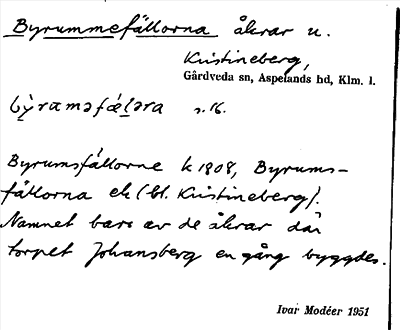 Byrummefällorna åkrar u.
Kristineberg,
Gårdveda sn, Aspelands hd, Klm. l.
s. 16.
Byrumsfällorne k 1808, Byrums-
fällorna ek (bl. Kristineberg).
Namnet bars av de åkrar där
torpet Johansberg en gång byggdes.
Ivar Modéer 1951